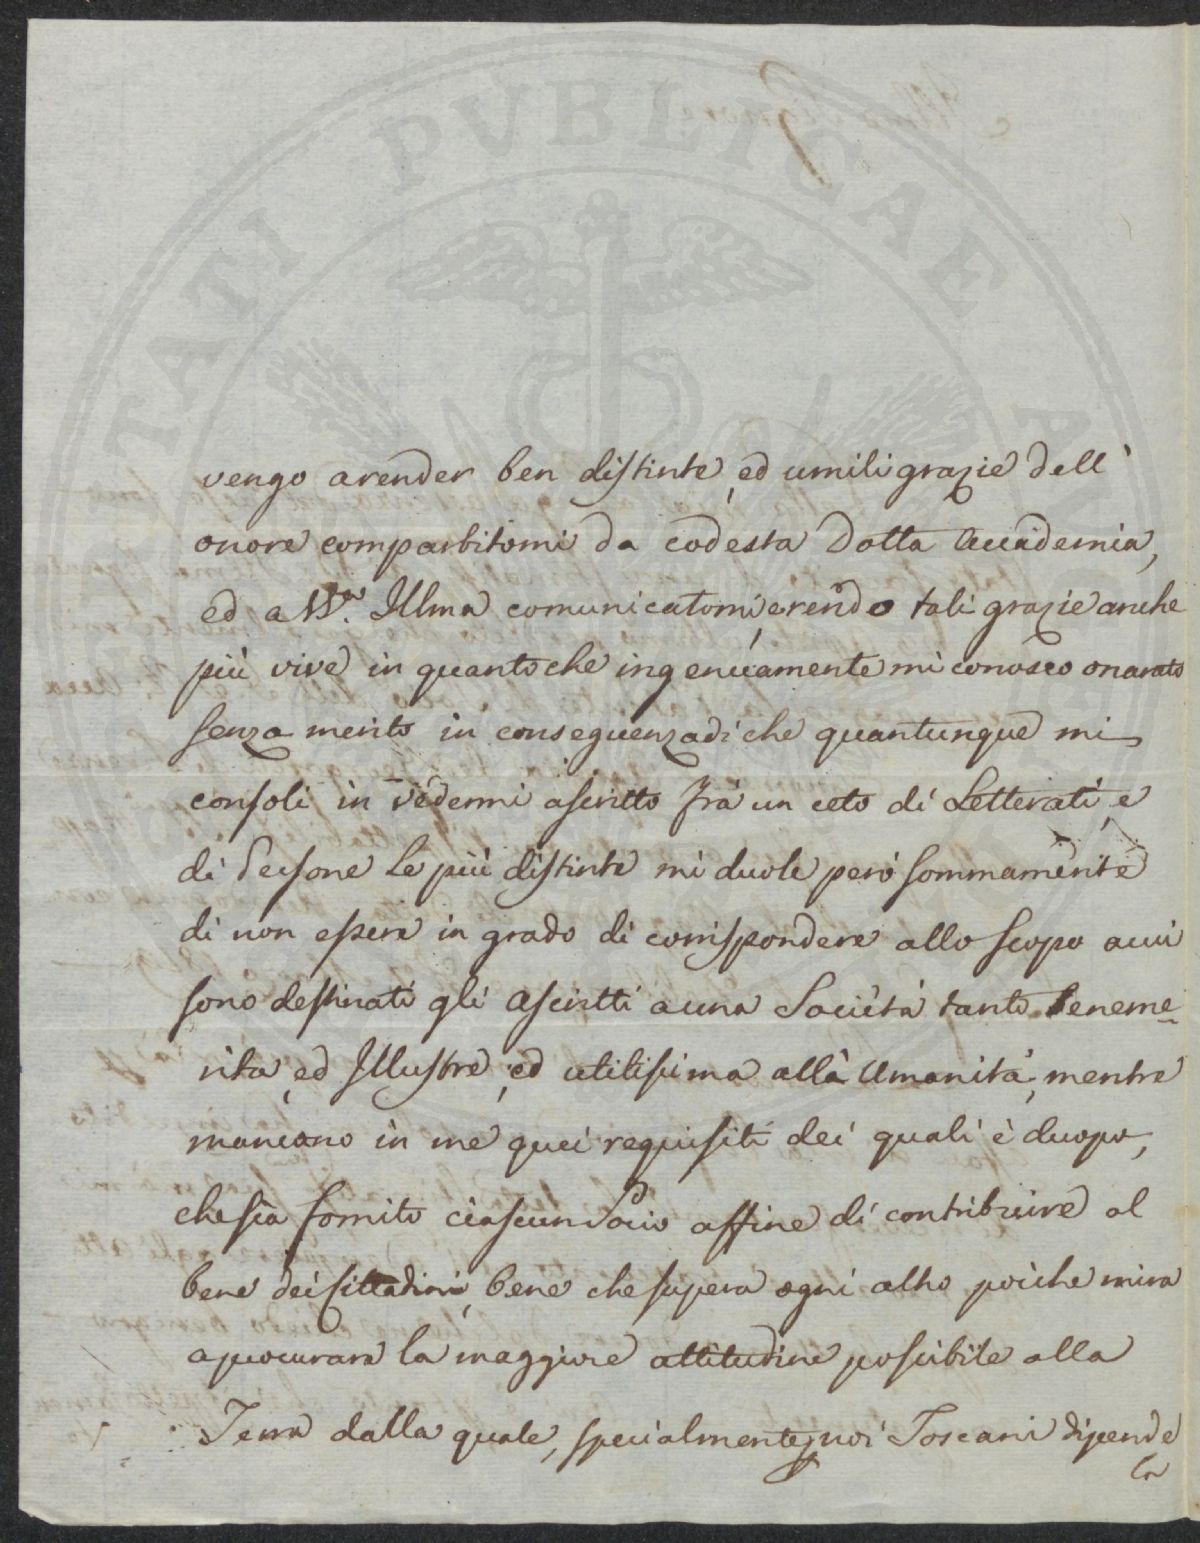 PROSPERITATI PVBLICAE AVGENDAE
vengo a render ben distinte, ed umili grazie dell'
onore compartitomi da codesta Dotta Accademia,
ed a VS.ra Illma comunicatomi, e rendo tali grazie anche
più vive in quanto che ingenuamente mi conosco onarato
senza merito in conseguenza di che quantunque mi
consoli in vedermi ascritto frà un ceto di Letterati, e
di Persone le più distinte mi duole però sommamente
di non essere in grado di corrispondere allo scopo a cui
sono destinati gli ascritti a una Società tanto beneme=
rita, ed Illustre, ed utilissima alla Umanità, mentre
mancano in me quei requisiti dei quali è duopo,
che sia fornito ciascun Socio affine di contribuire al
bene dei Cittadini, bene che supera ogni altro poiche mira
a procurare la maggiore attitudine possibile alla
Terra dalla quale, specialmente noi Toscani dipende
la